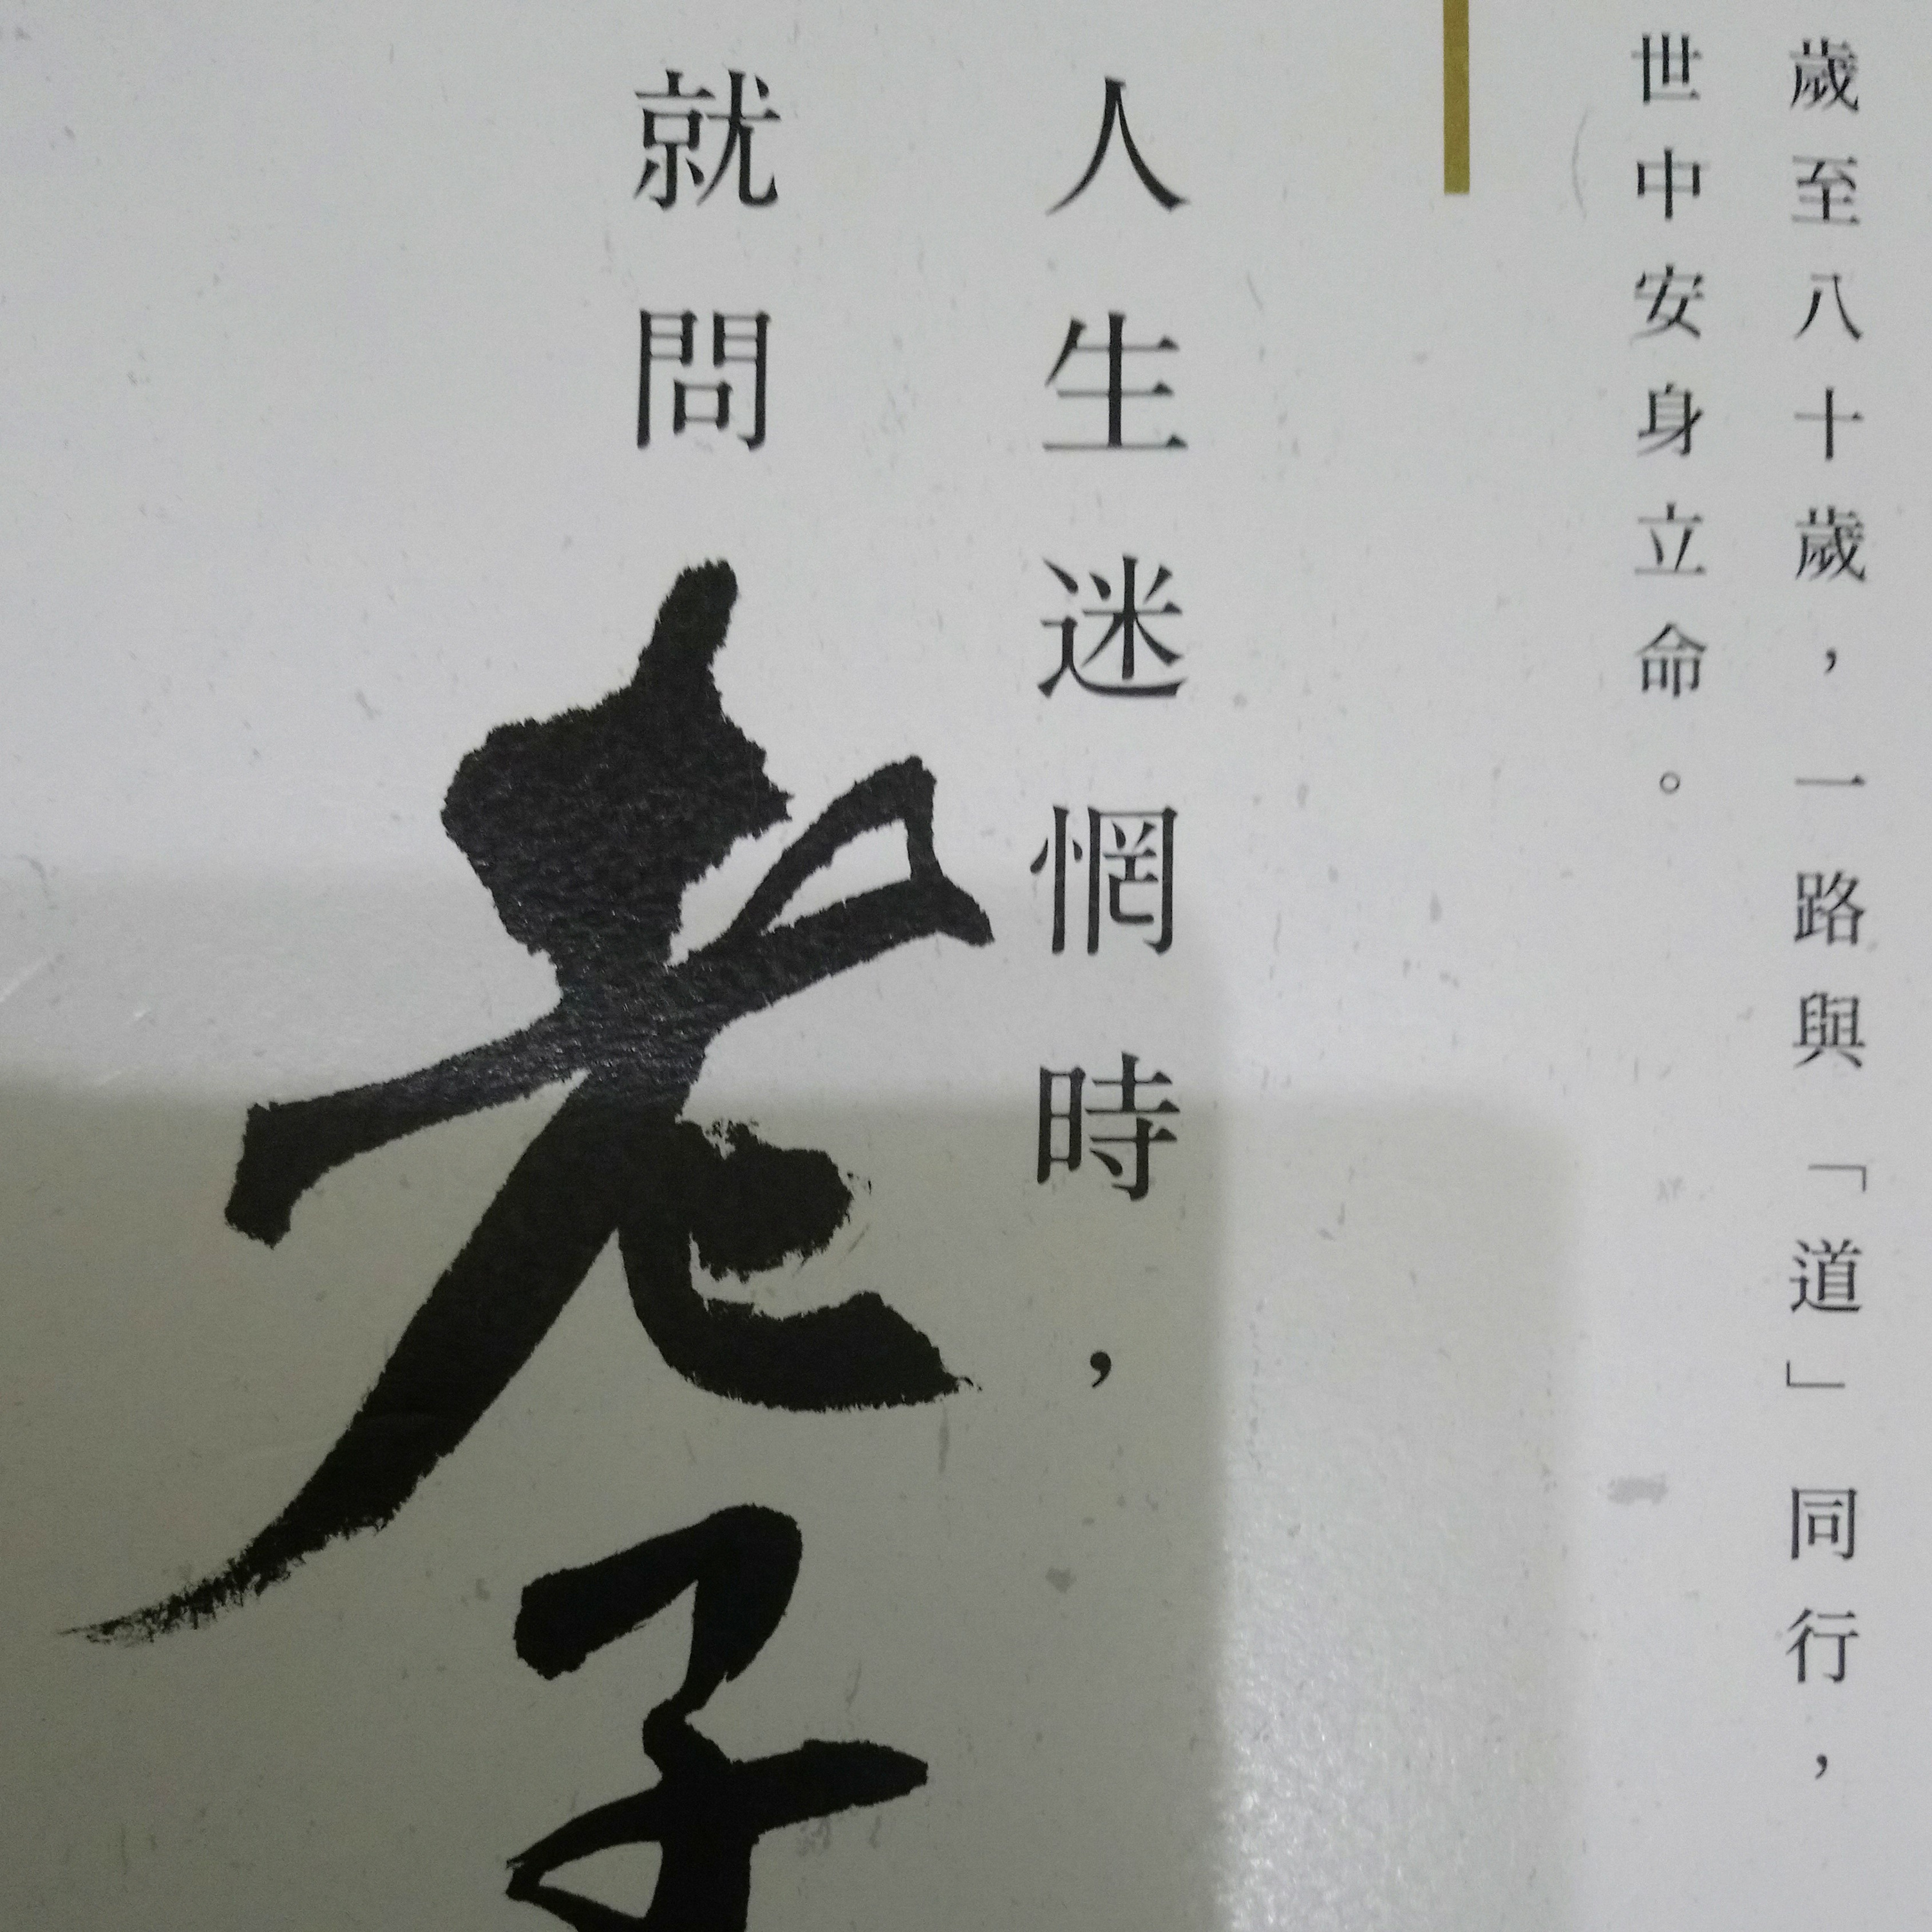 歲至八十歲，一路與「道」同行，
世中安身立命。
人生迷惘時，
就問老子